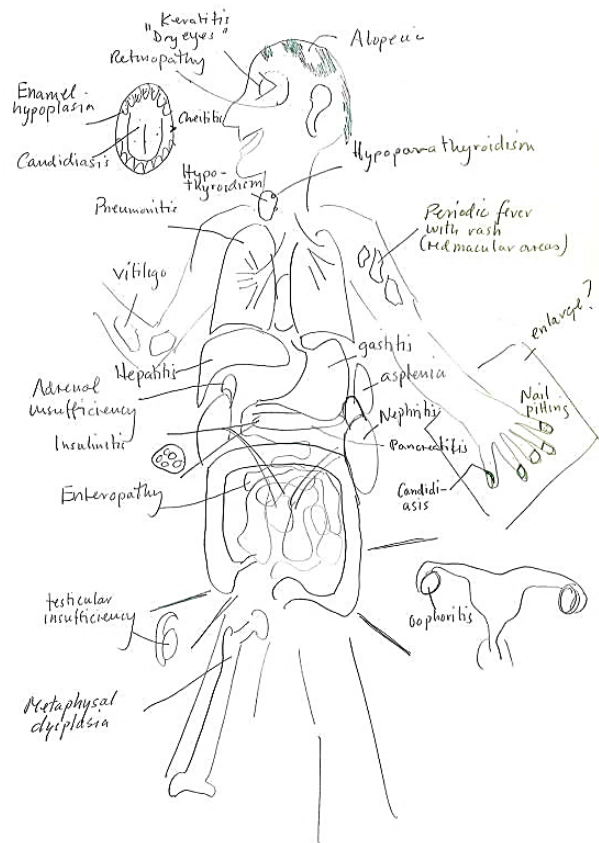 Keratitis
"Dry eyes"
Retinopathy
Alopeci
Enamel-
hypoplasia
Cheilitis
Candidiasis
Hypoparathyroidism
Hypo-
thyroidism
Pneumonitis
Periodic fever
with rash
(red macular areas)
Vitiligo
enlarge?
gastritis
Hepatitis
asplenia
Adrenal
insufficiency
Nail
pitting
Nephritis
Insulinitis
Pancreatitis
Enteropathy
Candidi-
asis
testicular
insufficiency
Oophoritis
Metaphysal
dysplasia